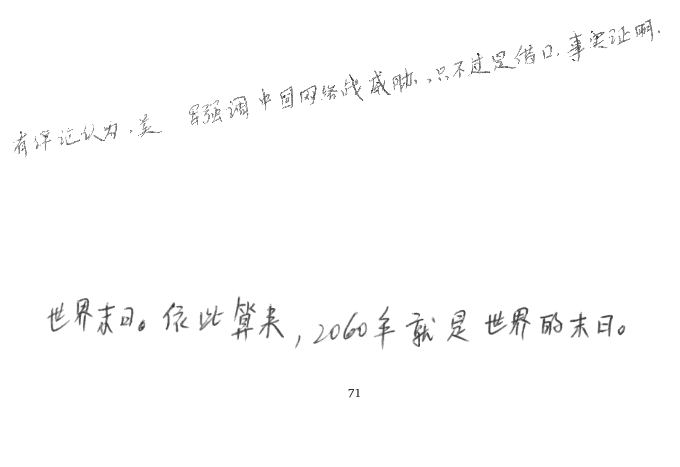 有评论认为,美军强调中国网络战威胁,只不过是借口.事实证明,
世界末日。依此算来,2060年就是世界的末日。
71